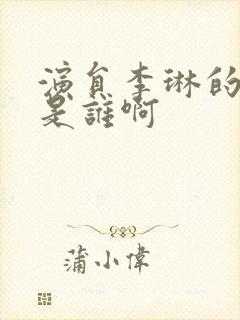 演員李琳的
是誰啊
蒲小偉